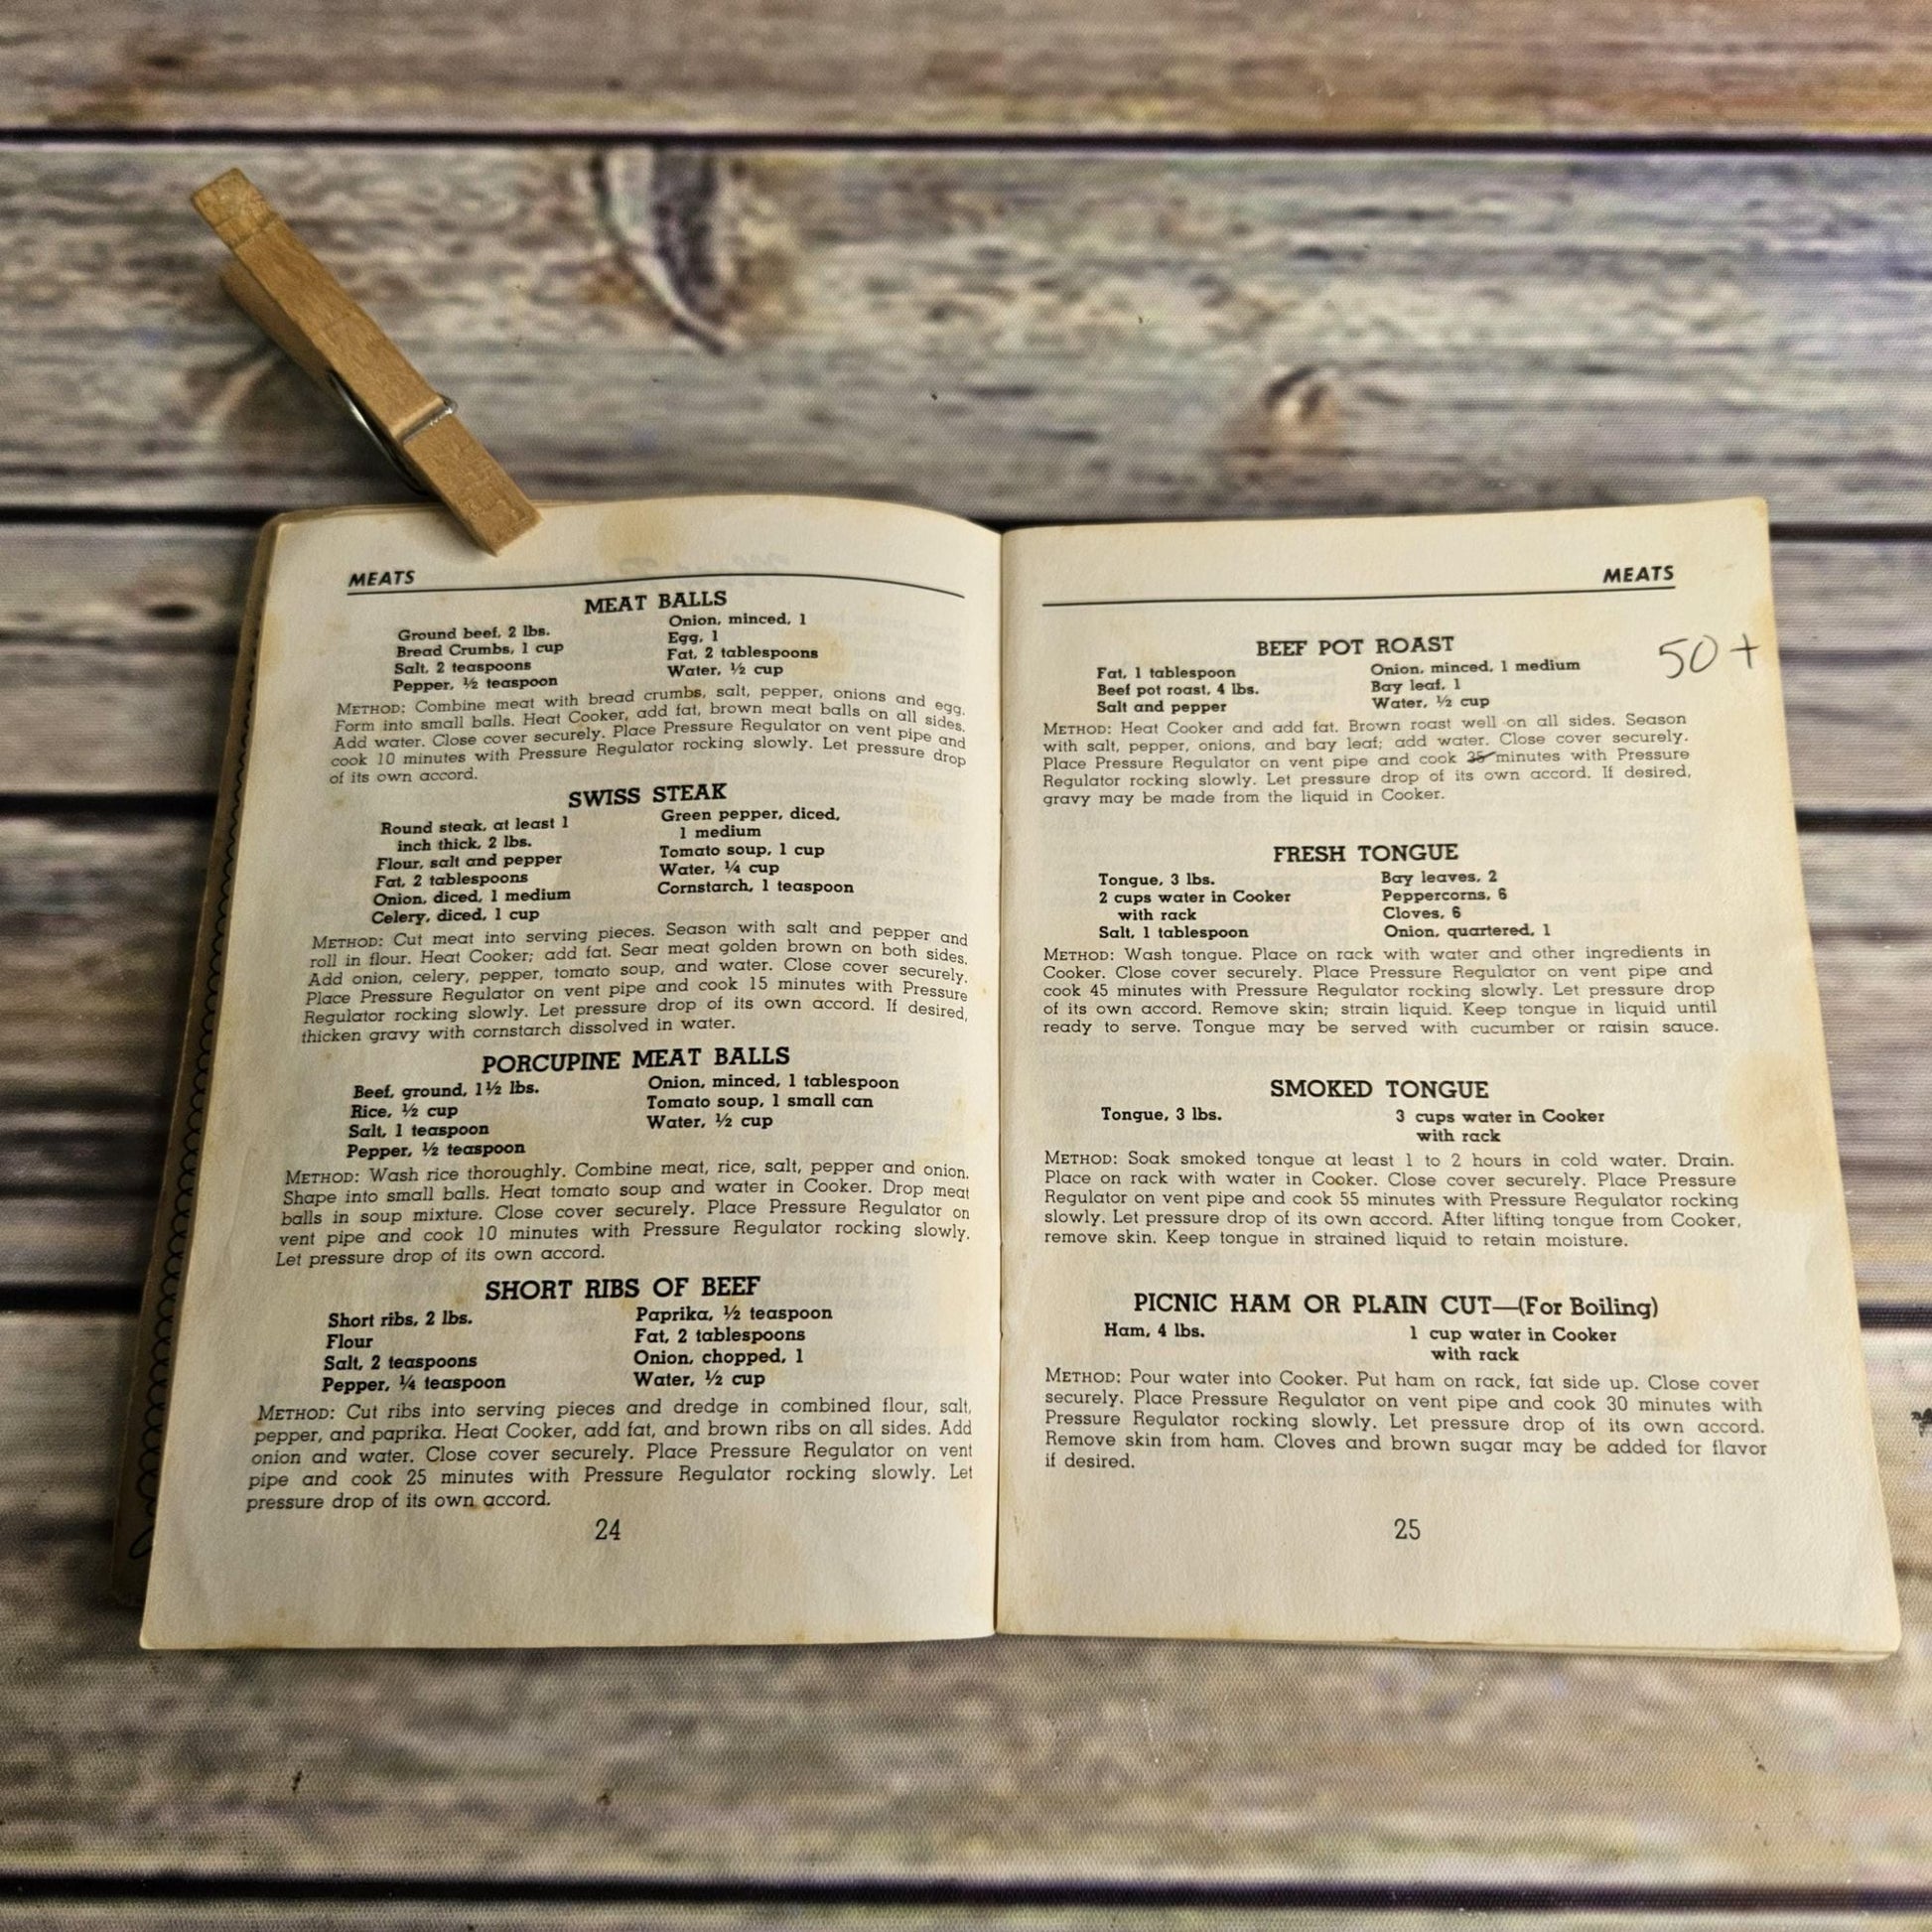 MEATS
MEAT BALLS
Ground beef, 2 lbs.
Bread Crumbs, 1 cup
Salt, 2 teaspoons
Pepper, ½ teaspoon
Onion, minced, 1
Egg, 1
Fat, 2 tablespoons
Water, ½ cup
METHOD: Combine meat with bread crumbs, salt, pepper, onions and egg.
Form into small balls. Heat Cooker, add fat, brown meat balls on all sides.
Add water. Close cover securely. Place Pressure Regulator on vent pipe and
cook 10 minutes with Pressure Regulator rocking slowly. Let pressure drop
of its own accord.
SWISS STEAK
Round steak, at least 1
inch thick, 2 lbs.
Flour, salt and pepper
Fat, 2 tablespoons
Onion, diced, 1 medium
Celery, diced, 1 cup
Green pepper, diced,
1 medium
Tomato soup, 1 cup
Water, ¼ cup
Cornstarch, 1 teaspoon
METHOD: Cut meat into serving pieces. Season with salt and pepper and
roll in flour. Heat Cooker; add fat. Sear meat golden brown on both sides.
Add onion, celery, pepper, tomato soup, and water. Close cover securely.
Place Pressure Regulator on vent pipe and cook 15 minutes with Pressure
Regulator rocking slowly. Let pressure drop of its own accord. If desired,
thicken gravy with cornstarch dissolved in water.
PORCUPINE MEAT BALLS
Beef, ground, 1½ lbs.
Rice, ½ cup
Salt, 1 teaspoon
Pepper, ½ teaspoon
Onion, minced, 1 tablespoon
Tomato soup, 1 small can
Water, ½ cup
METHOD: Wash rice thoroughly. Combine meat, rice, salt, pepper and onion.
Shape into small balls. Heat tomato soup and water in Cooker. Drop meat
balls in soup mixture. Close cover securely. Place Pressure Regulator on
vent pipe and cook 10 minutes with Pressure Regulator rocking slowly.
Let pressure drop of its own accord.
SHORT RIBS OF BEEF
Short ribs, 2 lbs.
Flour
Salt, 2 teaspoons
Pepper, ¼ teaspoon
Paprika, ½ teaspoon
Fat, 2 tablespoons
Onion, chopped, 1
Water, ½ cup
METHOD: Cut ribs into serving pieces and dredge in combined flour, salt,
pepper, and paprika. Heat Cooker, add fat, and brown ribs on all sides. Add
onion and water. Close cover securely. Place Pressure Regulator on vent
pipe and cook 25 minutes with Pressure Regulator rocking slowly. Let
pressure drop of its own accord.
24
MEATS
BEEF POT ROAST
50+
Fat, 1 tablespoon
Beef pot roast, 4 lbs.
Salt and pepper
Onion, minced, 1 medium
Bay leaf, 1
Water, ½ cup
METHOD: Heat Cooker and add fat. Brown roast well on all sides. Season
with salt, pepper, onions, and bay leaf; add water. Close cover securely.
Place Pressure Regulator on vent pipe and cook 35 minutes with Pressure
Regulator rocking slowly. Let pressure drop of its own accord. If desired,
gravy may be made from the liquid in Cooker.
FRESH TONGUE
Tongue, 3 lbs.
2 cups water in Cooker
with rack
Salt, 1 tablespoon
Bay leaves, 2
Peppercorns, 6
Cloves, 6
Onion, quartered, 1
METHOD: Wash tongue. Place on rack with water and other ingredients in
Cooker. Close cover securely. Place Pressure Regulator on vent pipe and
cook 45 minutes with Pressure Regulator rocking slowly. Let pressure drop
of its own accord. Remove skin; strain liquid. Keep tongue in liquid until
ready to serve. Tongue may be served with cucumber or raisin sauce.
SMOKED TONGUE
Tongue, 3 lbs.
3 cups water in Cooker
with rack
METHOD: Soak smoked tongue at least 1 to 2 hours in cold water. Drain.
Place on rack with water in Cooker. Close cover securely. Place Pressure
Regulator on vent pipe and cook 55 minutes with Pressure Regulator rocking
slowly. Let pressure drop of its own accord. After lifting tongue from Cooker,
remove skin. Keep tongue in strained liquid to retain moisture.
PICNIC HAM OR PLAIN CUT—(For Boiling)
Ham, 4 lbs.
1 cup water in Cooker
with rack
METHOD: Pour water into Cooker. Put ham on rack, fat side up. Close cover
securely. Place Pressure Regulator on vent pipe and cook 30 minutes with
Pressure Regulator rocking slowly. Let pressure drop of its own accord.
Remove skin from ham. Cloves and brown sugar may be added for flavor
if desired.
25